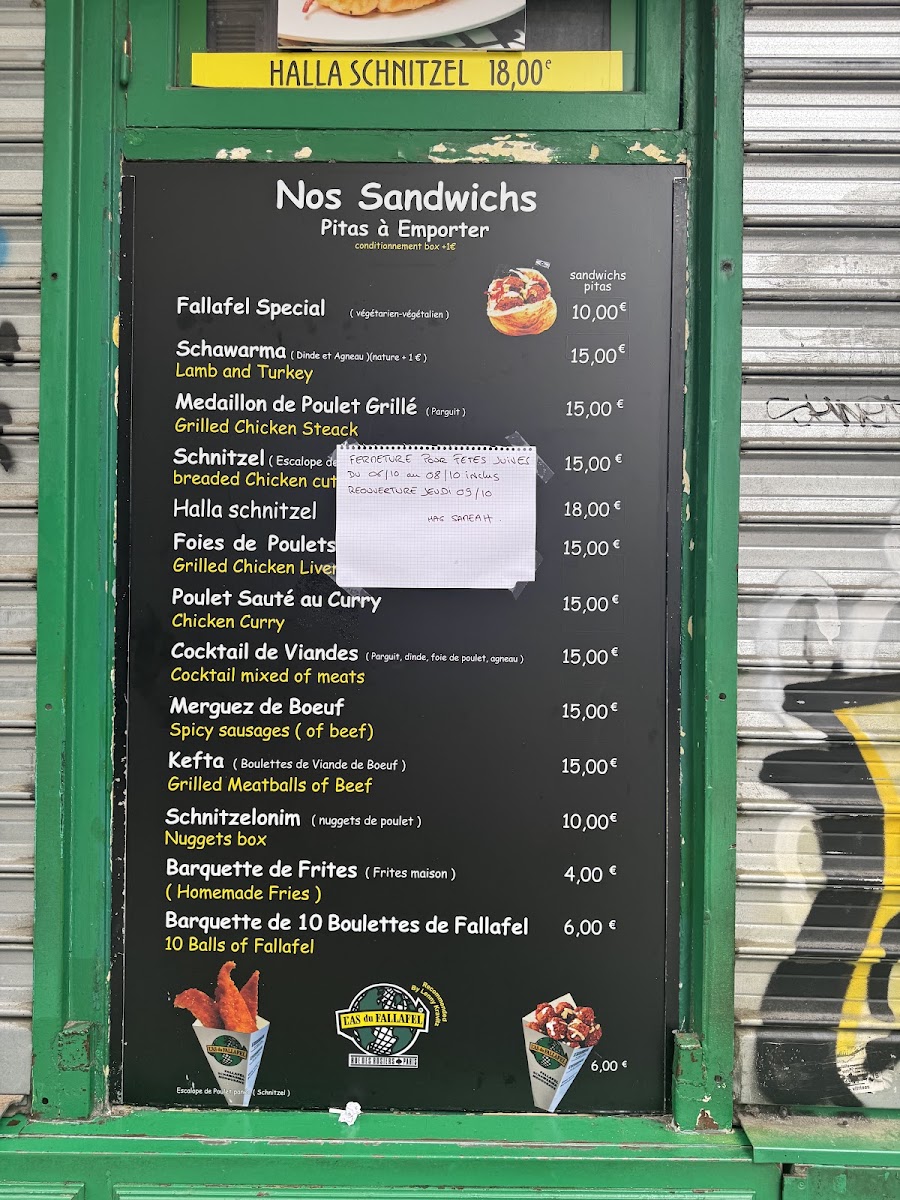 HALLA SCHNITZEL 18,00€
Nos Sandwichs
Pitas à Emporter
conditionnement box +1€
sandwichs
pitas
Fallafel Special ( végétarien-végétalien ) 10,00€
Schawarma ( Dinde et Agneau )(nature + 1 € ) 15,00€
Lamb and Turkey
Medaillon de Poulet Grillé ( Parguit ) 15,00 €
Grilled Chicken Steack
Schnitzel ( Escalope de 15,00 €
breaded Chicken cut
Halla schnitzel 18,00 €
Foies de Poulets 15,00 €
Grilled Chicken Liver
FERMETURE POUR FETES JUIVES
DU 06/10 au 08/10 inclus
REOUVERTURE JEUDI 09/10
HAG SAMEAH.
Poulet Sauté au Curry 15,00 €
Chicken Curry
Cocktail de Viandes ( Parguit, dinde, foie de poulet, agneau ) 15,00€
Cocktail mixed of meats
Merguez de Boeuf 15,00€
Spicy sausages ( of beef)
Kefta ( Boulettes de Viande de Boeuf ) 15,00€
Grilled Meatballs of Beef
Schnitzelonim ( nuggets de poulet ) 10,00€
Nuggets box
Barquette de Frites ( Frites maison ) 4,00 €
( Homemade Fries )
Barquette de 10 Boulettes de Fallafel 6,00 €
10 Balls of Fallafel
Recommended
By Lenny Kravitz
L'AS du FALLAFEL
RUE DES ROSIERS PARIS
L'AS du FALLAFEL
L'AS du FALLAFEL
6,00 €
Escalope de Poulet ( Schnitzel )